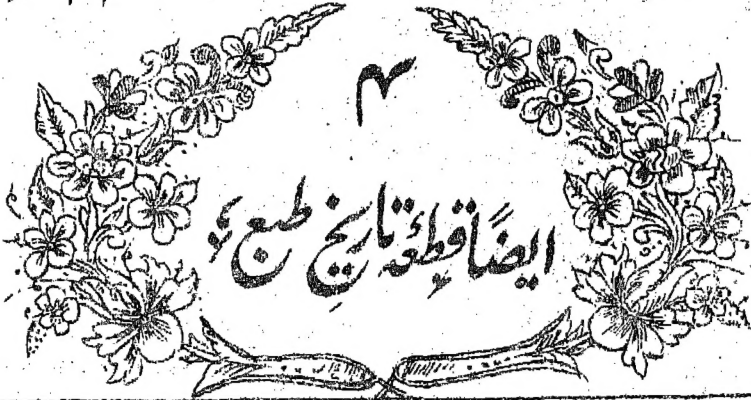 ۴
ایضًا قطعۂ تاریخ طبع